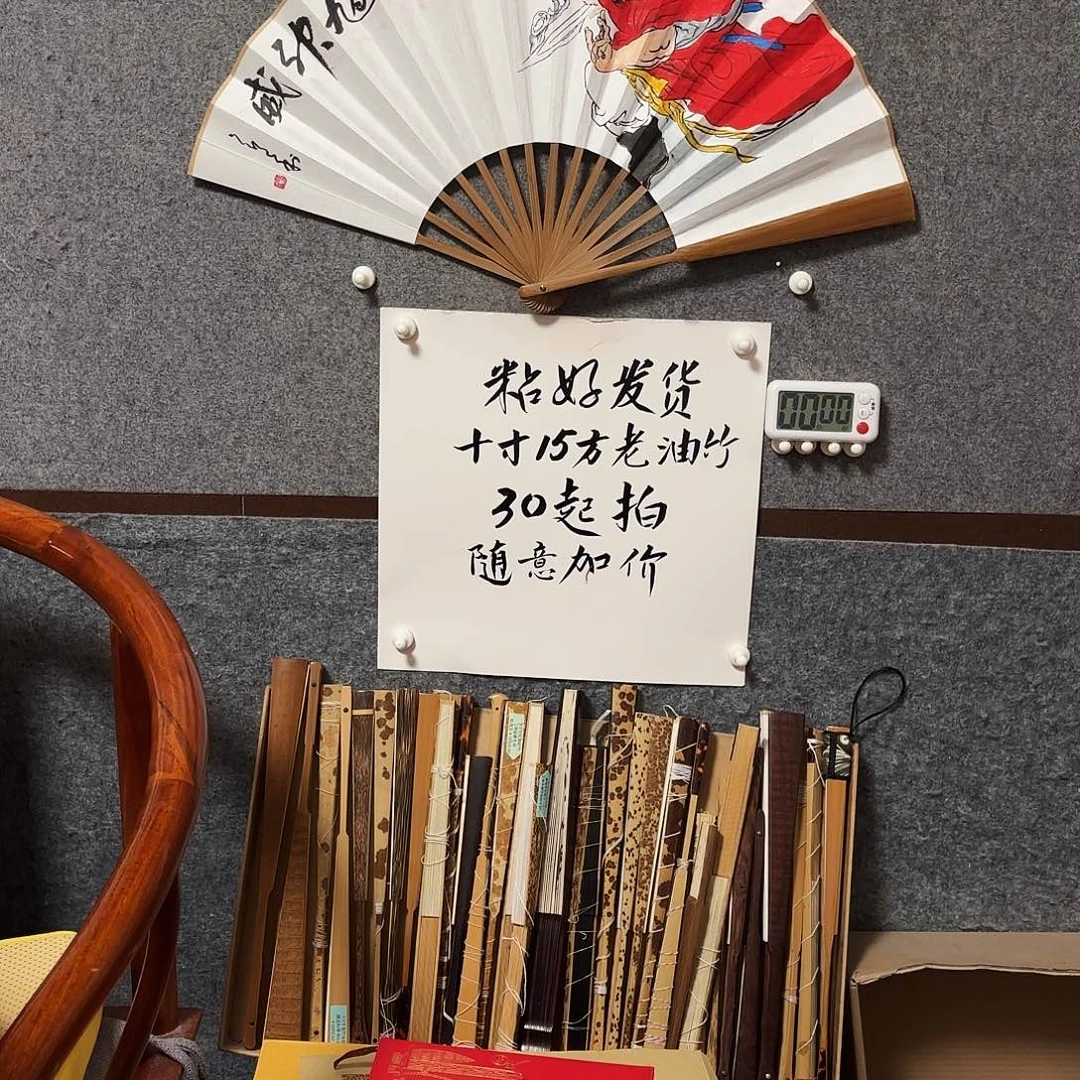 粘好发货
十寸15方老油竹
30起拍
随意加价
00:00